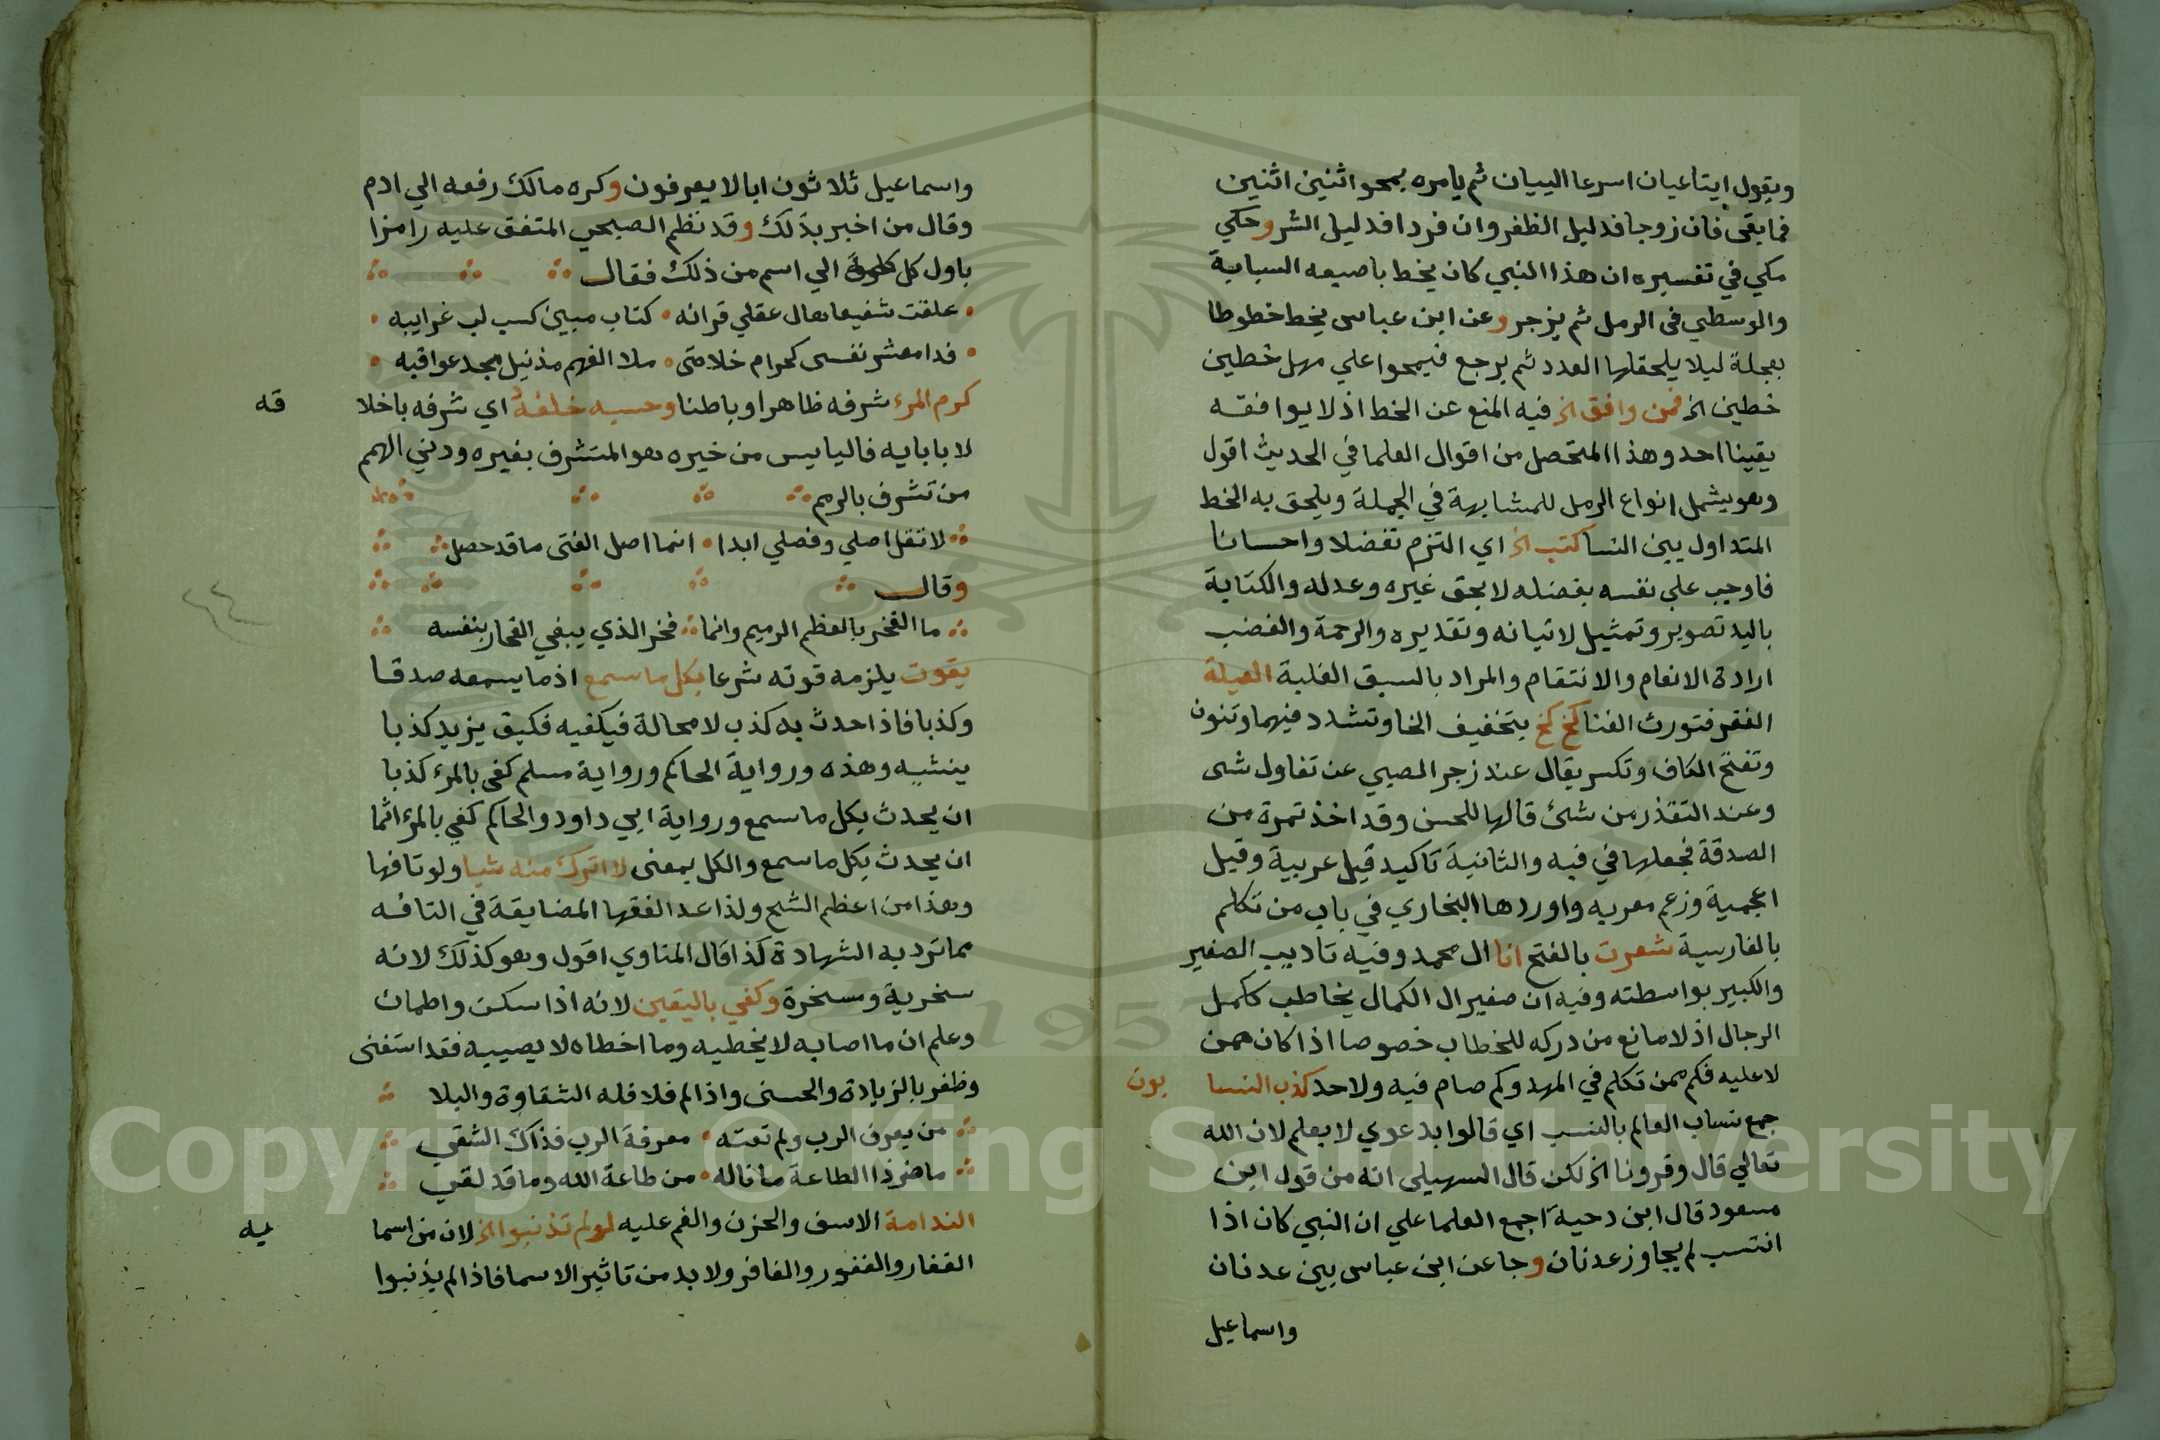 ويقول ايتاعيان اسرعا البيان ثم يامره بمحو اثنين اثنين
فما بقي فان زوجا فدليل الظفر وان فردا فدليل الشر وحكي
مكي في تفسيره ان هذا النبي كان يخط باصبعه السبابة
والوسطي في الرمل ثم يزجر وعن ابن عباس يخط خطوطا
بعجلة ليلا يلحقها العدد ثم يرجع فيمحوا علي مهل خطين
خطين الخ فمن وافق الخ فيه المنع عن الخط اذ لا يوافقه
يقينا احد وهذا المتحصل من اقوال العلما في الحديث اقول
وهو يشمل انواع الرمل للمشابهة في الجملة ويلحق به الخط
المتداول بين النسا كتب الخ اي التزم تفضلا واحسانا
فاوجب علي نفسه بفضله لا بحق غيره وعدله والكتابة
باليد تصوير وتمثيل لاتيانه وتقديره والرحمة والغضب
ارادة الانعام والانتقام والمراد بالسبق الغلبة العيلة
الفقر فتورث الفنا كخ كخ بتخفيف الخا وتشدد فيهما وتنون
وتفتح الكاف وتكسر يقال عند زجر الصبي عن تفاول شي
وعند التقذر من شئ قالها للحسن وقد اخذ تمرة من
الصدقة فجعلها في فيه والثانية تاكيد قيل عربية وقيل
اعجمية وزعم معربه واوردها البخاري في باب من تكلم
بالفارسية شعرت بالفتح انا ال محمد وفيه تاديب الصغير
والكبير بواسطته وفيه ان صغير ال الكمال يخاطب ككمل
الرجال اذ لا مانع من دركه للخطاب خصوصا اذا كان همن
لا عليه فكم ممن تكلم في المهد وكم صام فيه ولاحد كذب النسا بون
جمع نساب العالم بالنسب اي قالوا بدعوي لا بعلم لان الله
تعالي قال وقرونا الخ لكن قال السهيلي انه من قول ابن
مسعود قال ابن دحية اجمع العلما علي ان النبي كان اذا
انتسب لم يجاوز عدنان وجا عن ابن عباس بين عدنان
واسماعيل
واسماعيل ثلاثون ابا لا يعرفون وكره مالك رفعه الي ادم
وقال من اخبر بذلك وقد نظم الصبحي المتفق عليه رامزا
باول كل كلمة الي اسم من ذلك فقال
علقت شفيعا هال عقلي قرانه كتاب مبين كسب لب غرايبه
فدا معشر نفسي كحرام خلا متي ملا الفهم مذ نيل مجد عواقبه
كرم المرء شرفه ظاهرا وباطنا وحسبه خلقه اي شرفه باخلا قه
لا بابايه فاليايس من خيره هو المتشرف بغيره ودني الهمم
من تشرف بالرمم
لا تقل اصلي وفصلي ابدا انما اصل الفتى ما قد حصل
وقال
ما الفخر بالعظم الرميم وانما فخر الذي يبغي الفخار بنفسه
يقوت يلزمه قوته شرعا بكل ما سمع اذ ما يسمعه صدقا
وكذبا فاذا حدث به كذب لا محالة فيكفيه فكيف يزيد كذبا
ينشيه وهذه ورواية الحاكم ورواية مسلم كفي بالمرء كذبا
ان يحدث بكل ما سمع ورواية ابي داود والحاكم كفي بالمرء اثما
ان يحدث بكل ما سمع والكل بمعنى لا اترك منه شيا ولو تافها
وهذا من اعظم الشح ولذا عد الفقها المضايقة في التافه
مما ترد به الشهادة كذا قال المناوي اقول وهو كذلك لانه
سخرية ومسخرة وكفي باليقين لانه اذا سكن واطمان
وعلم ان ما اصابه لا يخطيه وما اخطاه لا يصيبه فقد استغنى
وظفر بالزيادة والحسنى واذا لم فلا فله الشقاوة والبلا
من يعرف الرب ولم تغنه معرفة الرب فذاك الشقي
ما ضر ذا الطاعة ما ناله من طاعة الله وما قد لقي
الندامة الاسف والحزن والغم عليه لو لم تذنبوا الخ لان من اسما يه
الغفار والغفور والغافر ولا بد من تاثير الاسما فاذا لم يذنبوا
Copyright © King Saud University
1957